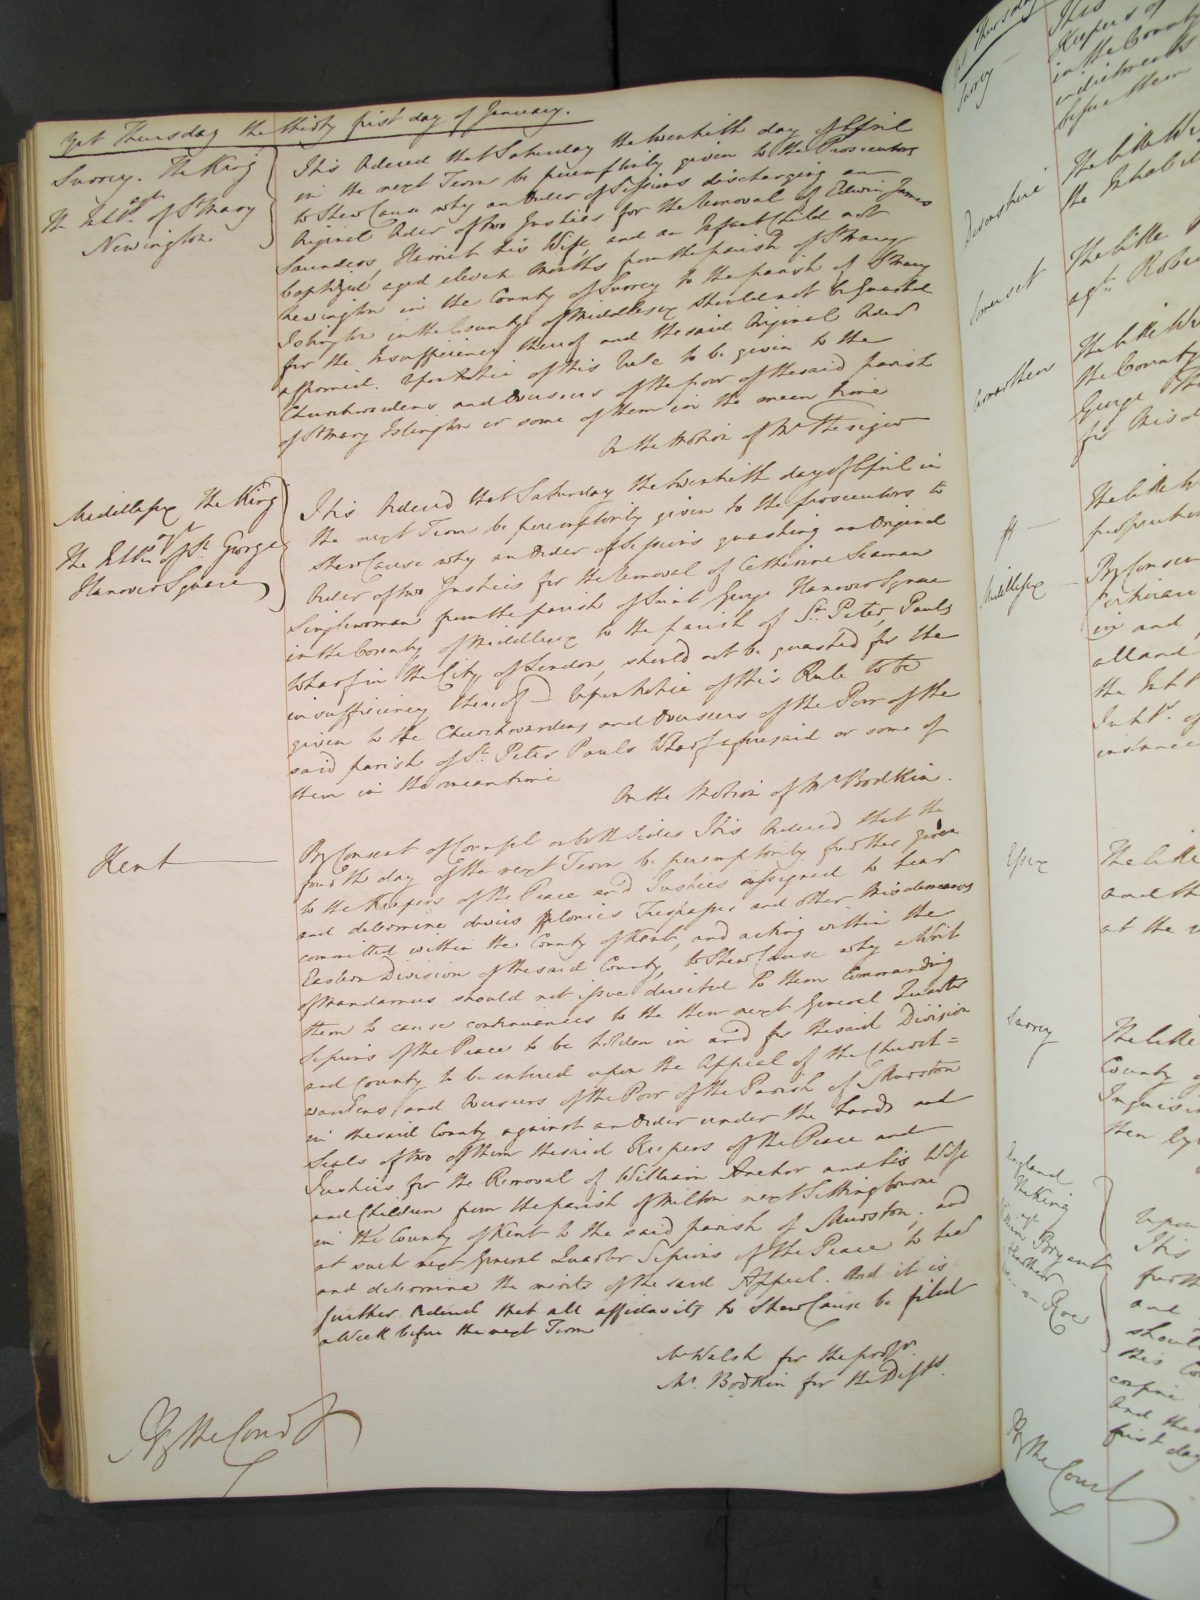 Yet Thursday the thirty first day of January.
Surrey. The King
agst
The Inhts. of St Mary
Newington
It is Ordered that Saturday the twentieth day of April
in the next Term be peremptorily given to the Prosecutors
to Shew Cause why an Order of Sessions discharging an
Original Order of two Justices for the Removal of Edwin James
Saunders, Harriet his Wife, and an Infant Child not
baptized aged eleven Months from the parish of St Mary
Newington in the County of Surrey to the parish of St Mary
Islington in the County of Middlesex should not be Quashed
for the Insufficiency thereof and the said Original Order
affirmed. Upon Notice of this Rule to be given to the
Churchwardens and Overseers of the poor of the said parish
of St Mary Islington or some of them in the mean time
On the Motion of Mr Thesiger
Middlesex The King
agt
The Inhts. of St. George
Hanover Square
It is Ordered that Saturday the twentieth day of April in
the next Term be peremptorily given to the prosecutors to
shew Cause why an Order of Sessions quashing an Original
Order of two Justices for the Removal of Catherine Seaman
Singlewoman from the parish of Saint George Hanover Square
in the County of Middlesex to the parish of St. Peter, Pauls
Wharf in the City of London, should not be quashed for the
insufficiency thereof – Upon Notice of this Rule to be
given to the Churchwardens and Overseers of the Poor of the
said parish of St. Peter Pauls Wharf aforesaid or some of
them in the meantime
On the Motion of Mr Bodkin.
Kent
By Consent of Counsel on both Sides It is Ordered that the
fourth day of the next Term be peremptorily further given
to the Keepers of the Peace and Justices assigned to hear
and determine divers Felonies Trespasses and other Misdemeanors
committed within the County of Kent, and acting within the
Eastern Division of the said County, to Shew Cause why a Writ
of Mandamus should not issue directed to them Commanding
them to cause continuances to the then next General Quarter
Sessions of the Peace to be holden in and for the said Division
and County to be entered upon the Appeal of the Church=
wardens and Overseers of the Poor of the Parish of Murston
in the said County against an Order under the hands and
Seals of two of them the said Keepers of the Peace and
Justices for the Removal of William Anchor and his Wife
and Children from the parish of Milton next Sittingbourne
in the County of Kent to the said parish of Murston, and
at such next General Quarter Sessions of the Peace to hear
and determine the merits of the said Appeal. And it is
further Ordered that all affidavits to Shew Cause be filed
a Week before the next Term
Mr Walsh for the pros[r].
Mr. Bodkin for the Defts.
By the Court
Surrey
Keepers of
in the County
indictments
before them
Devonshire
Somerset
Carmarthen
The County
George
Middlesex
By Consent
Certiorari
all and
Essex
and th
at the
Surrey
County of
then by
England
The King
agt
Bryant
Roe
Upon
It is
and
first day
By the Court